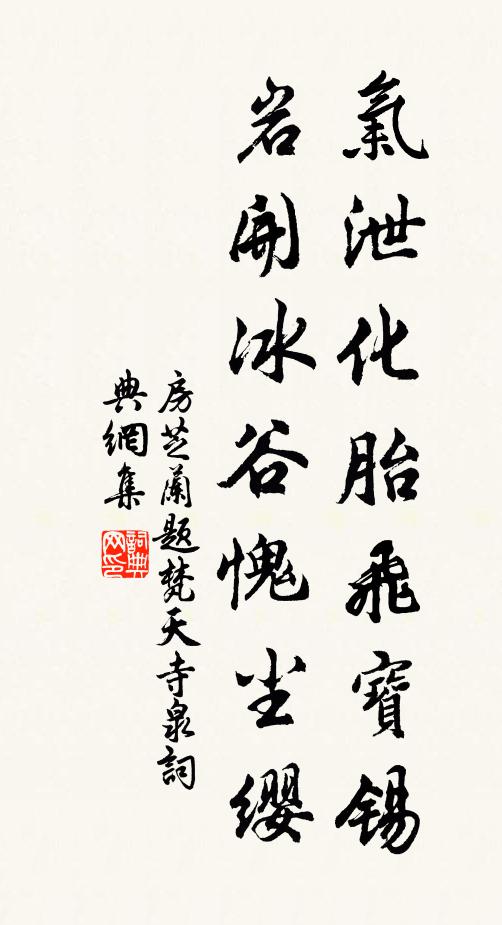 氣泄化胎飛寶錫
岩開冰谷愧尘纓
房芝蘭題梵天寺泉詞
典網集
詞典网印